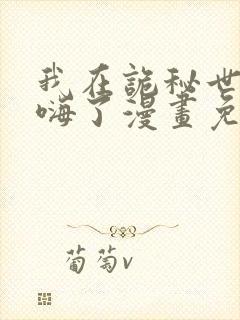 我在詭秘世
嗨了漫畫免
葡萄v